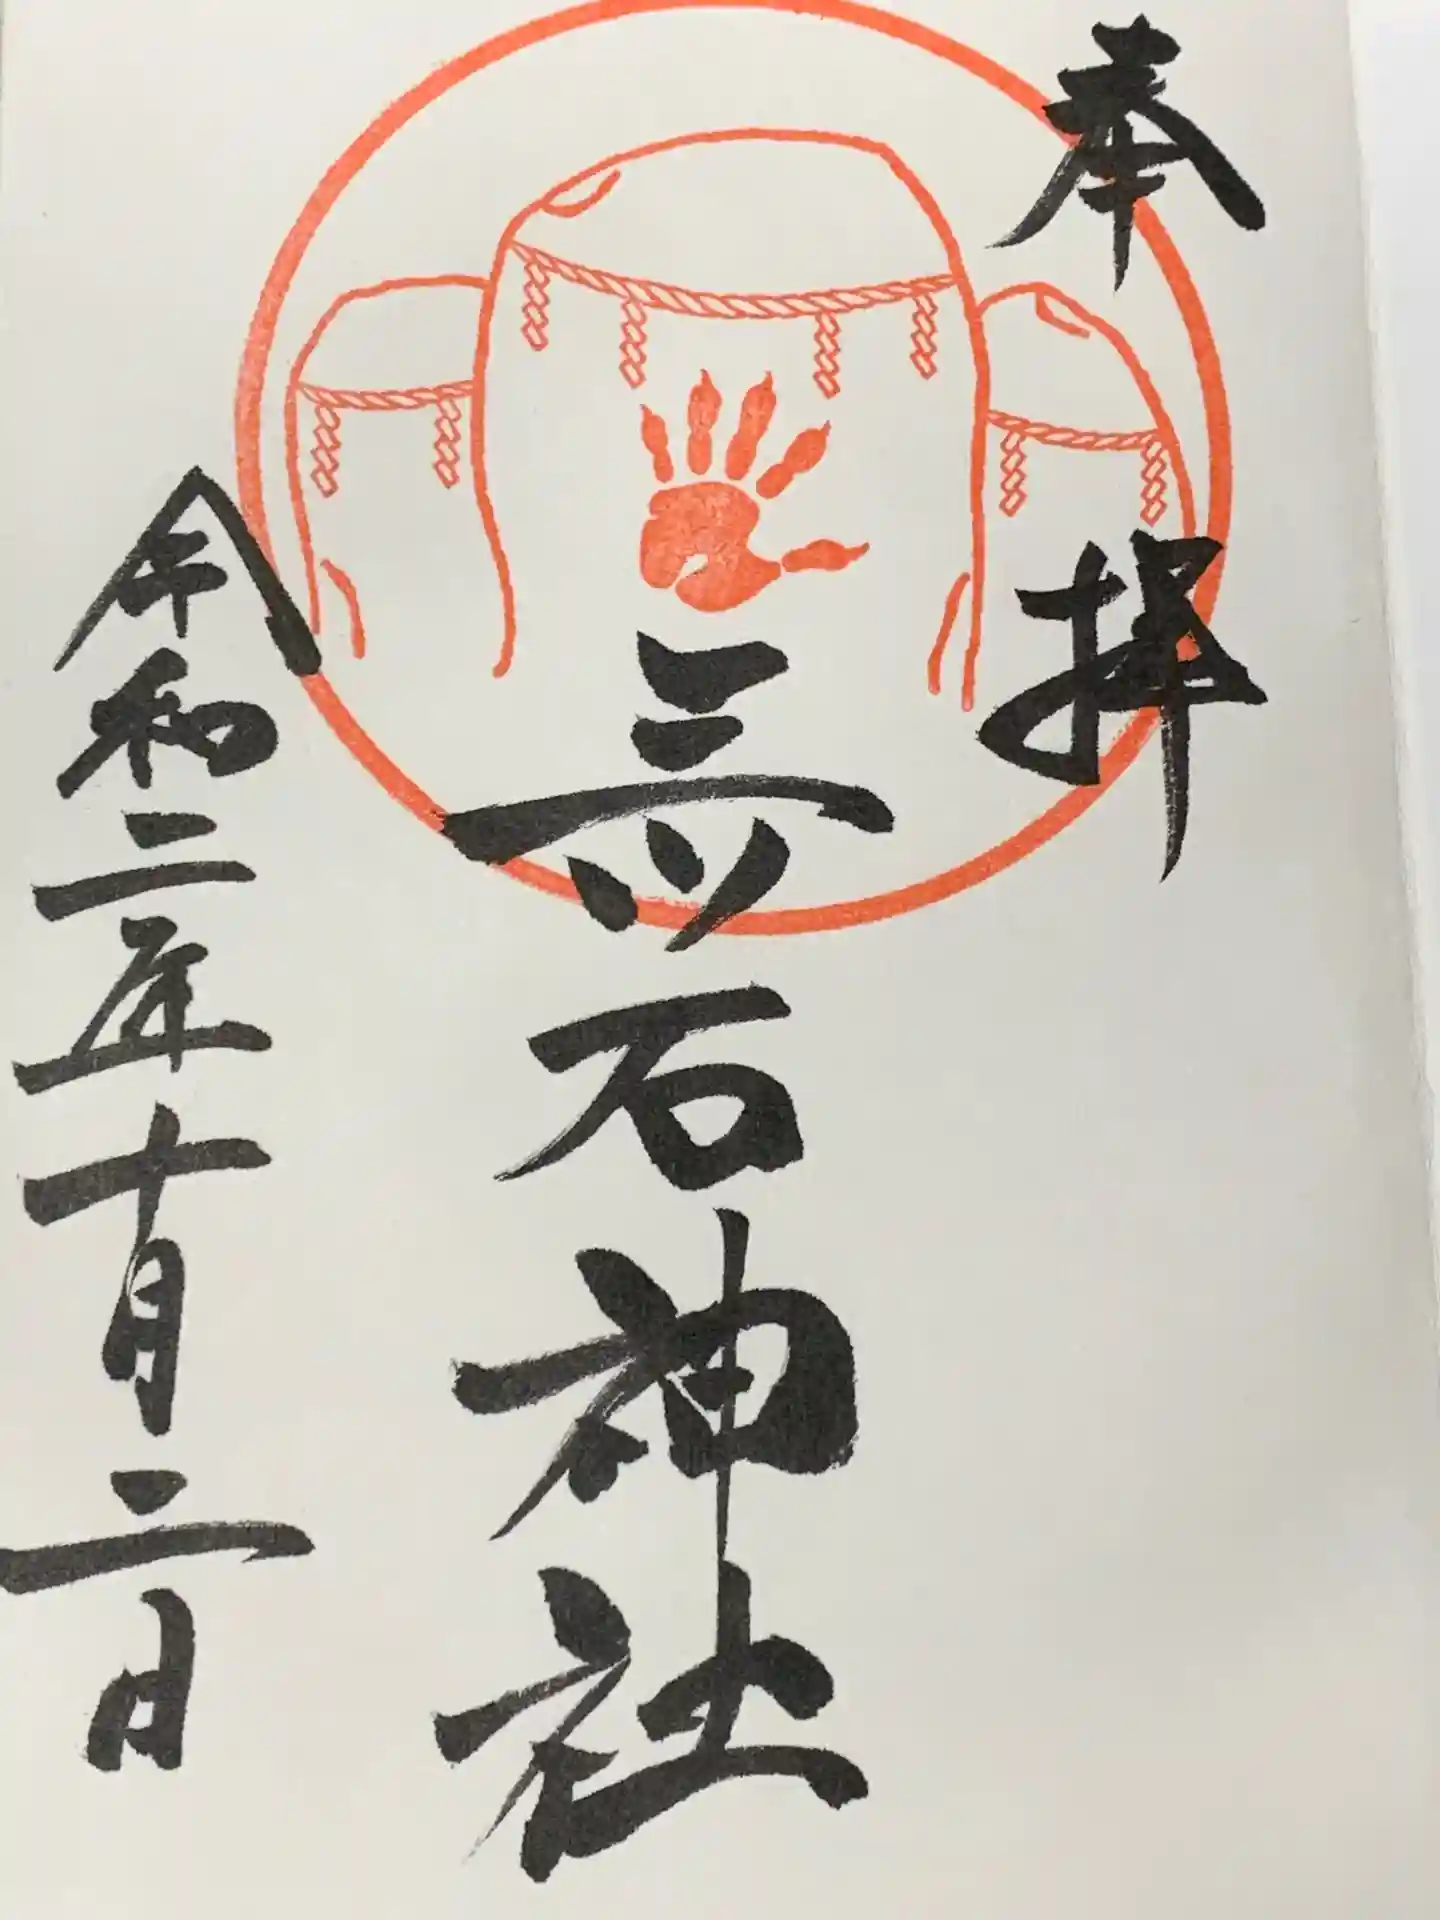 奉拝
三ツ石神社
令和二年十月二日